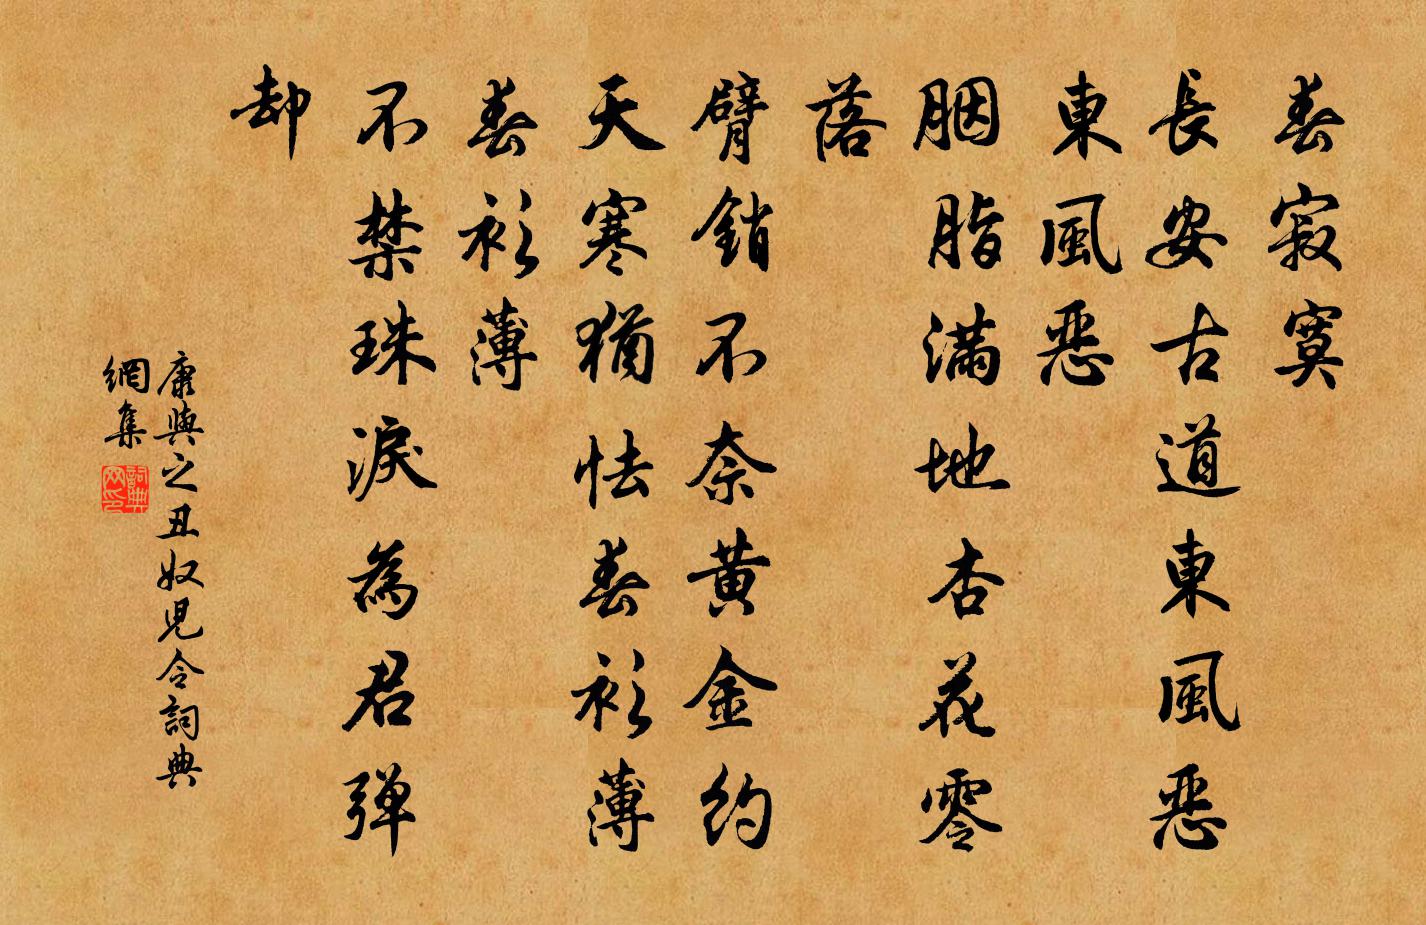 春寂寞
長安古道東風惡
東風惡
胭脂滿地杏花零
落
臂銷不奈黃金約
天寒猶怯春衫薄
春衫薄
不禁珠淚為君彈
却
康與之丑奴兒令詞典
網集
詞典網印